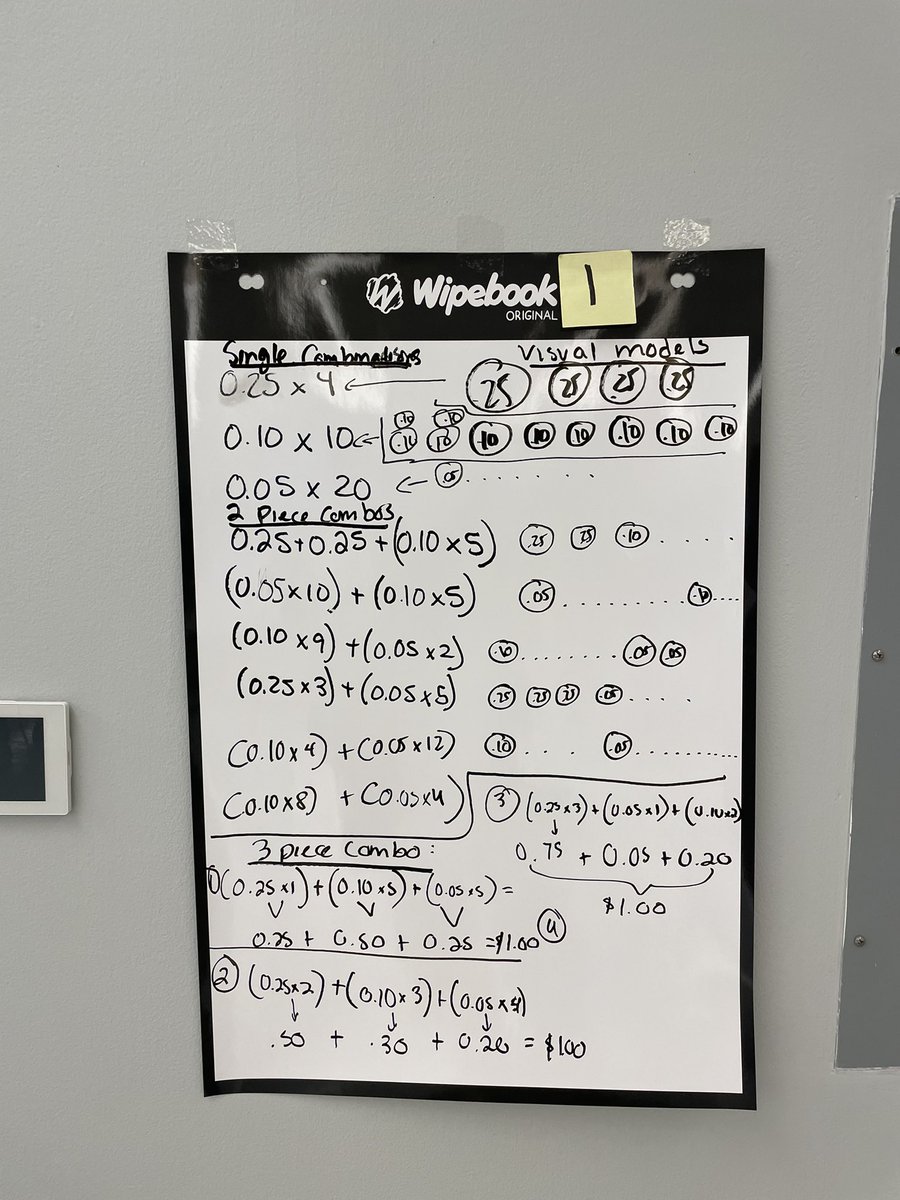 Wipebook
ORIGINAL
1
Single Combinations
Visual models
0.25 x 4 ← .25 .25 .25 .25
0.10 x 10 ← .10 .10 .10 .10 .10 .10 .10 .10 .10 .10
0.05 x 20 ← .05 . . . . . . .
2 Piece Combos
0.25+0.25+(0.10x5) .25 .25 .10 . . . .
(0.05x10) + (0.10x5) .05 . . . . . . . . . .10 . . . .
(0.10 x9) +(0.05 x2) .10 . . . . . . . . .05 .05
(0.25x3)+(0.05x5) .25 .25 .25 .05 . . . .
(0.10x4) + (0.05 x12) .10 . . . .05 . . . . . . . . . . .
(0.10x8) + (0.05x4)
3 piece Combo:
1 (0.25 x1)+(0.10 x5)+(0.05 x5) =
0.25 + 0.50 + 0.25 = $1.00
2 (0.25x2)+(0.10x3)+(0.05 x4)
.50 + .30 + 0.20 = $1.00
3 (0.25x3)+(0.05x1)+(0.10x2)
0.75 + 0.05 + 0.20
$1.00
4